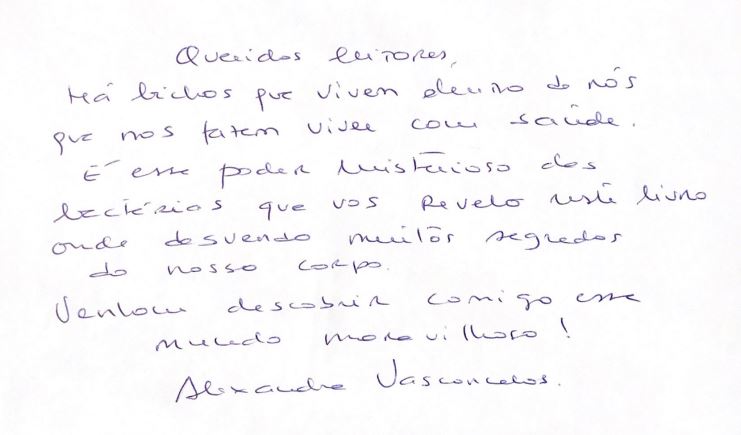 Queridos leitores,
Há bichos que vivem dentro de nós
que nos fazem viver com saúde.
É esse poder misterioso das
bactérias que vos revelo neste livro
onde desvendo muitos segredos
do nosso corpo.
Venham descobrir comigo esse
mundo maravilhoso!
Alexandra Vasconcelos.